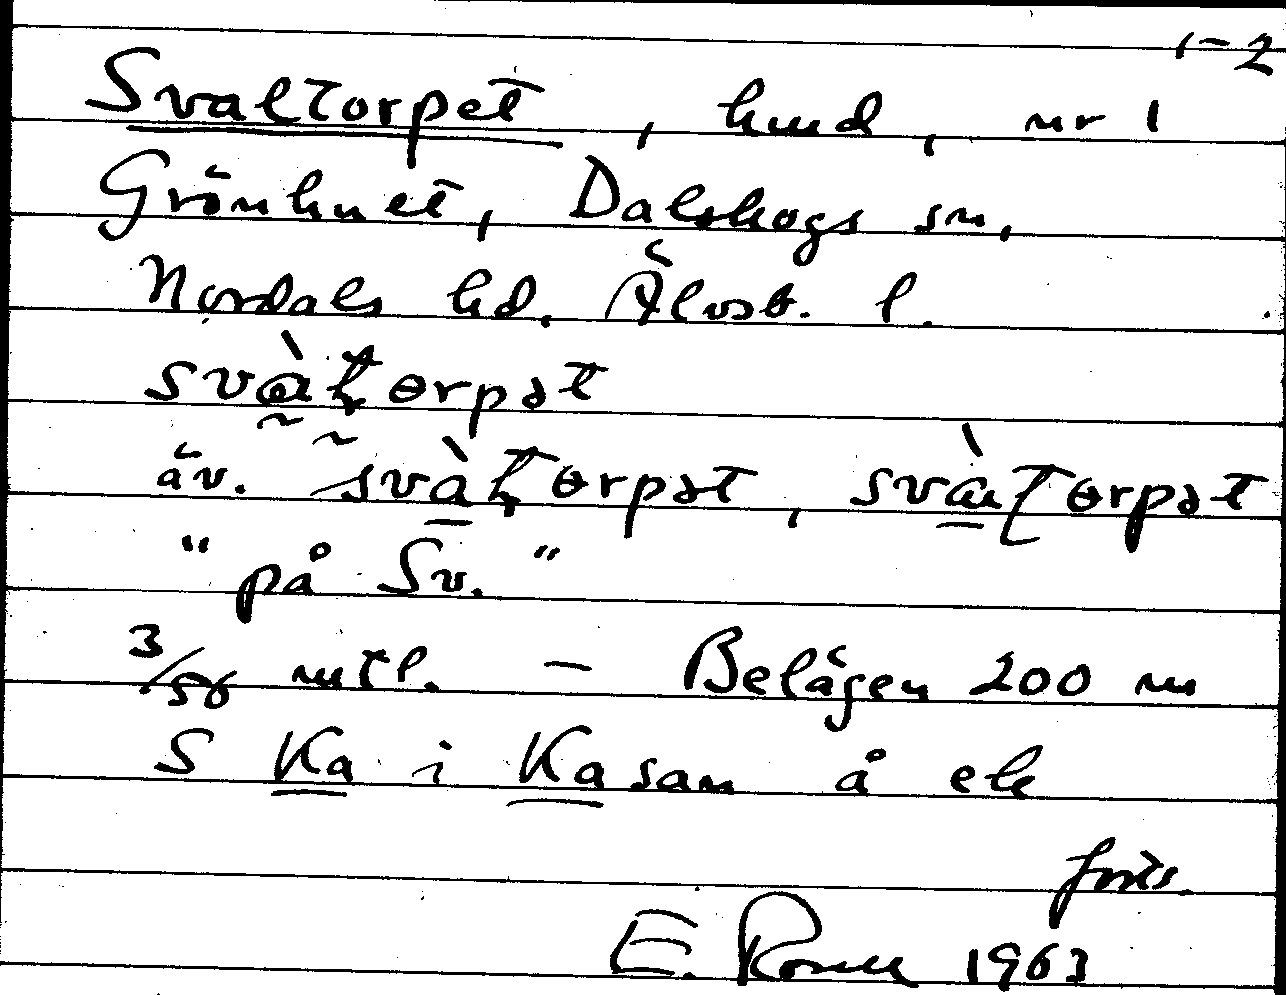 1-2
Svaltorpet, hmd, nr 1
Grönhult, Dalskogs sn,
Nordals hd. Älvsb. l.
svàƚ̣ɵrpət
äv. svàƚ̣ɵrpət, svàlɵrpət
"på Sv."
3/56 mtl. - Belägen 200 m
S Ka i Kasam å ek
forts.
E. 1963